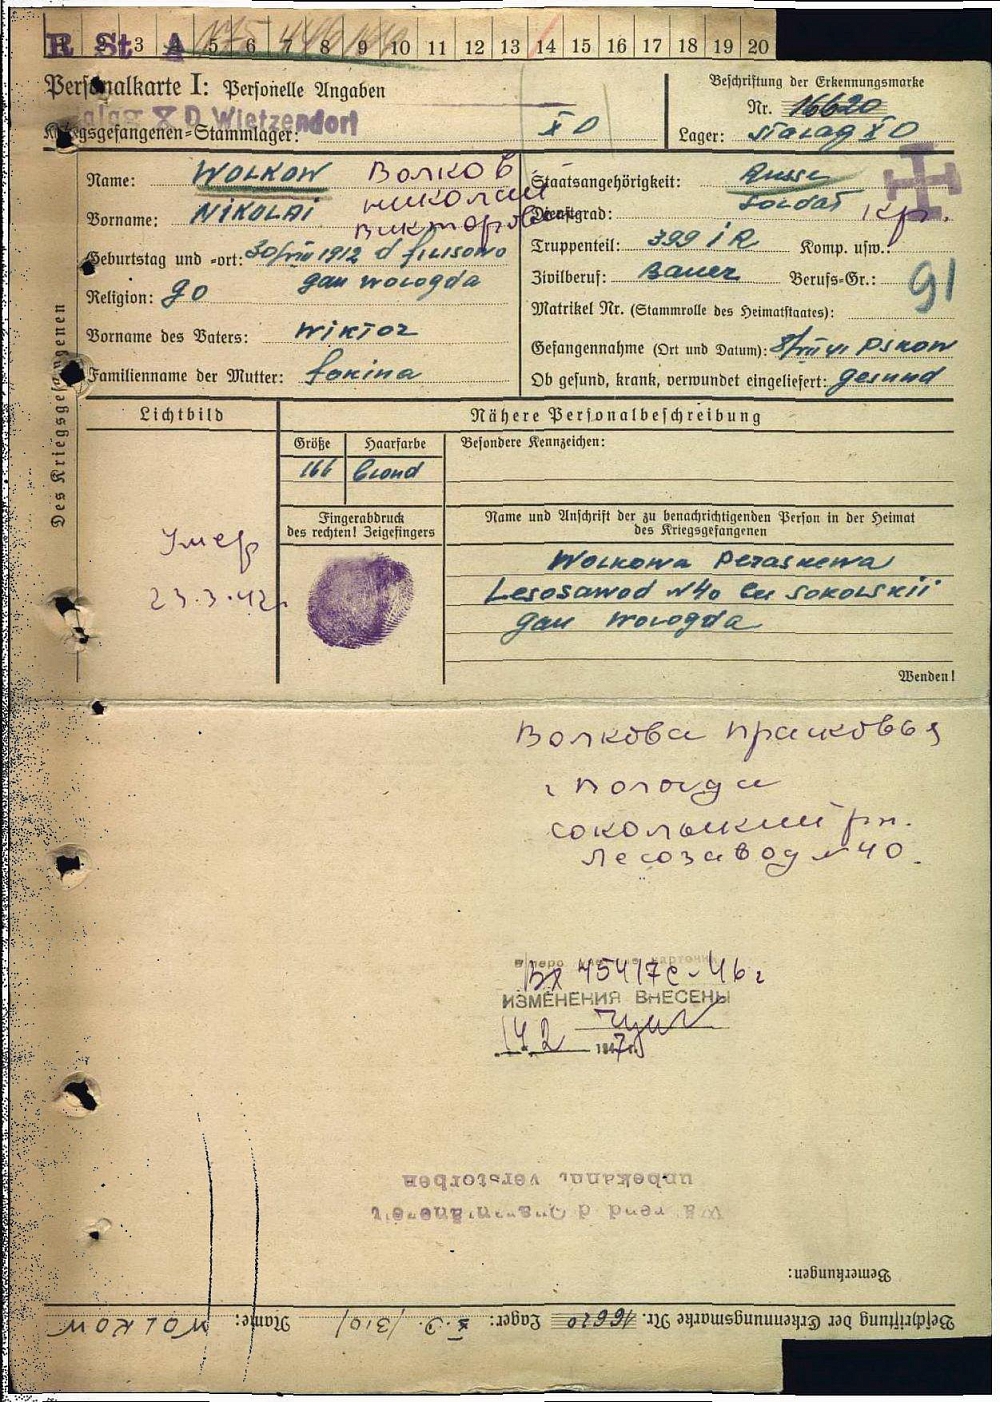 R St A
3 4 5 6 7 8 9 10 11 12 13 14 15 16 17 18 19 20
Personalkarte I: Personelle Angaben
Beschriftung der Erkennungsmarke
Nr. 16620
Stalag X D Wietzendorf
Kriegsgefangenen-Stammlager: X D
Lager: Stalag X D
Des Kriegsgefangenen
Name: WOLKOW Волков
Vorname: NIKOLAI Николай
Викторович
Geburtstag und -ort: 30/VIII 1912 d
gau Wologda
Religion: go
Vorname des Vaters: Wiktor
Familienname der Mutter: Fokina
Staatsangehörigkeit: Russe
Dienstgrad: Soldat кр.
Truppenteil: 399 IR Komp. usw.:
Zivilberuf: Bauer Berufs-Gr.: 91
Matrikel Nr. (Stammrolle des Heimatstaates):
Gefangennahme (Ort und Datum): 8/VII 41 Pskow
Ob gesund, krank, verwundet eingeliefert: gesund
Lichtbild
Nähere Personalbeschreibung
Größe Haarfarbe Besondere Kennzeichen:
166 blond
Умер
23.3.42г.
Fingerabdruck
des rechten! Zeigefingers
Name und Anschrift der zu benachrichtigenden Person in der Heimat
des Kriegsgefangenen
Wolkowa Peraskewa
Lesosawod N40 Sokolskii
gau Wologda
Wenden!
Волкова Прасковья
г Вологда
Сокольский рн.
Лесозавод №40.
Вх 45417с-46г
ИЗМЕНЕНИЯ ВНЕСЕНЫ
14 2 1947г
unbekannt verstorben
Während d Quarantänezeit
Bemerkungen:
Beschriftung der Erkennungsmarke Nr. 16620 Lager: X.D. /310/ Name: WOLKOW